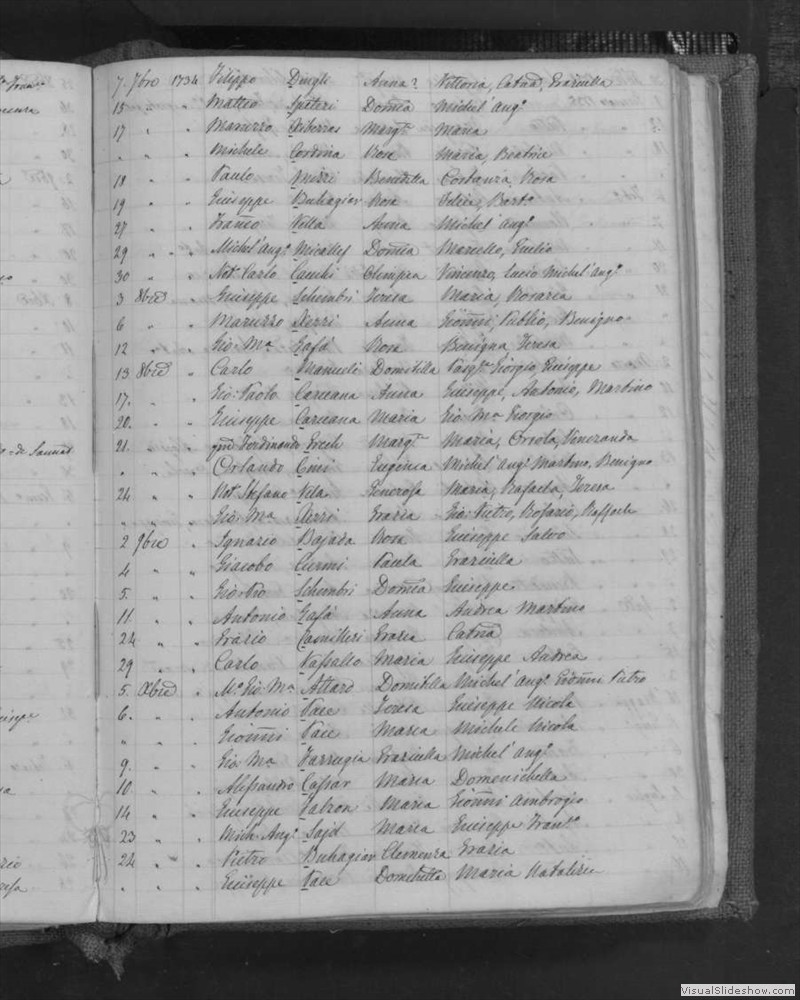 7 7bre 1734 Filippo Dingli Anna Vittoria, Catna, Graziulla
15 " " Matteo Spiteri Domca Michel' Ang.o
17 " " Maruzzo Xiberras Marg.ta Maria
" " " Michele Cordina Rosa Maria, Beatrice
18 " " Paulo Muzzi Benedetta Costanza, Rosa
19 " " Giuseppe Buhagiar Rosa Felice, Bart.o
27 " " Franco Vella Anna Michel' Ang.o
29 " " Michel' Ang.o Micallef Domca Marcello, Giulio
30 " " Not. Carlo Olimpia Vincenzo, Lucio Michel' Ang.o
3 8bre " Giuseppe Schembri Teresa Maria, Rosaria
6 " " Maruzzo Xerri Anna Gionni, Publio, Benigno
12 " " Gio: M.a Gafá Rosa Benigna Teresa
13 8bre " Carlo Mamuli Domitilla Pasq.le Giorgio, Giuseppe
17. " " Gio: Paolo Caruana Anna Giuseppe, Antonio, Martino
20. " " Giuseppe Caruana Maria Gio: M.a Giorgio
21. " " qm Ferdinando Marg.ta Maria, Orsola, Veneranda
" " " Orlando Cini Eugenia Michel' Ang.o Martino, Benigno
24 " " Not. Stefano Vela Generosa Maria, Rafaela, Teresa
" " " Gio: M.a Xerri Grazia Gio: Pietro, Rosario, Raffaele
2 9bre " Ignazio Bajada Rosa Giuseppe Salvo
4 " " Giacobo Curmi Paula Graziulla
5 " " Gio: Schembri Domca Giuseppe
11 " " Antonio Gafá Anna Andrea Martino
24 " " Grazio Camilleri Grazia Catna
29 " " Carlo Vassallo Maria Giuseppe Andrea
5. Xbre " M.o Gio: M.a Attard Domitilla Michel' Ang.o Gionni Pietro
6. " " Antonio Pace Teresa Giuseppe Nicola
" " " Gionni Pace Maria Michele Nicola
9. " " Gio: M.a Farrugia Graziulla Michel' Ang.o
10 " " Alessandro Cassar Maria Domenichella
14 " " Giuseppe Falzon Maria Gionni Ambrogio
23 " " Mich. Ang.o Sajd Maria Giuseppe Fran.co
24 " " Pietro Buhagiar Clemenza Grazia
" " " Giuseppe Pace Domitilla Maria Natalizia
VisualSlideshow.com